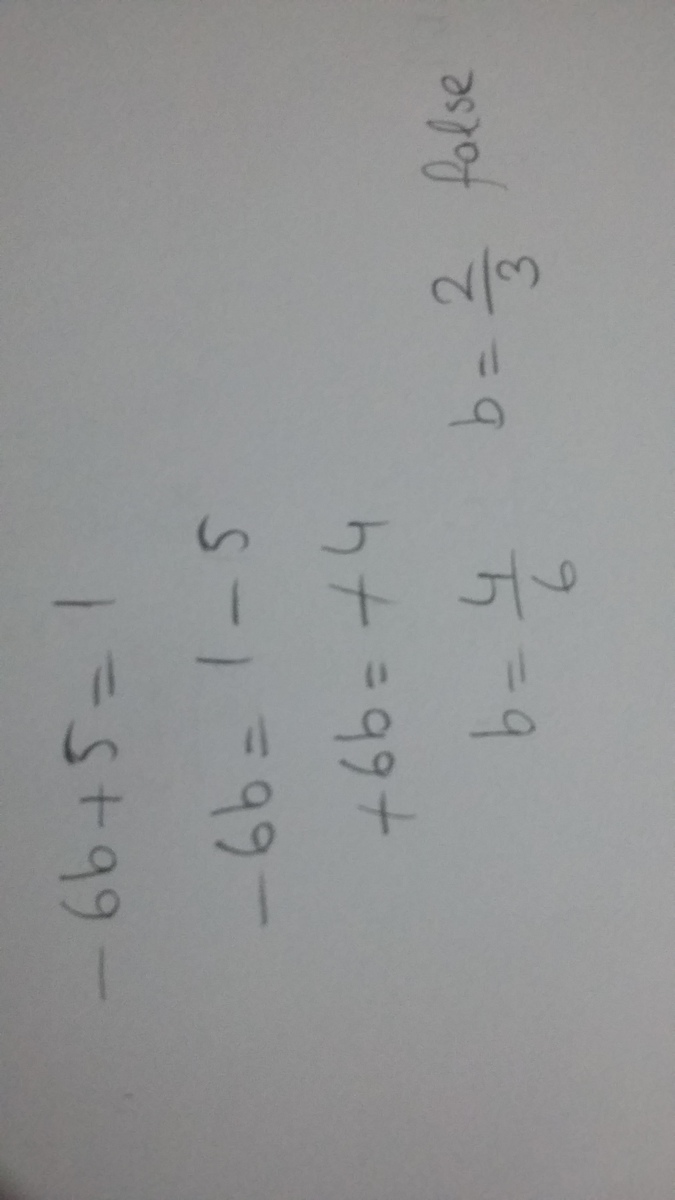 -6b+5=1
-6b=1-5
+6b=+4
b=4/6 b=2/3 false